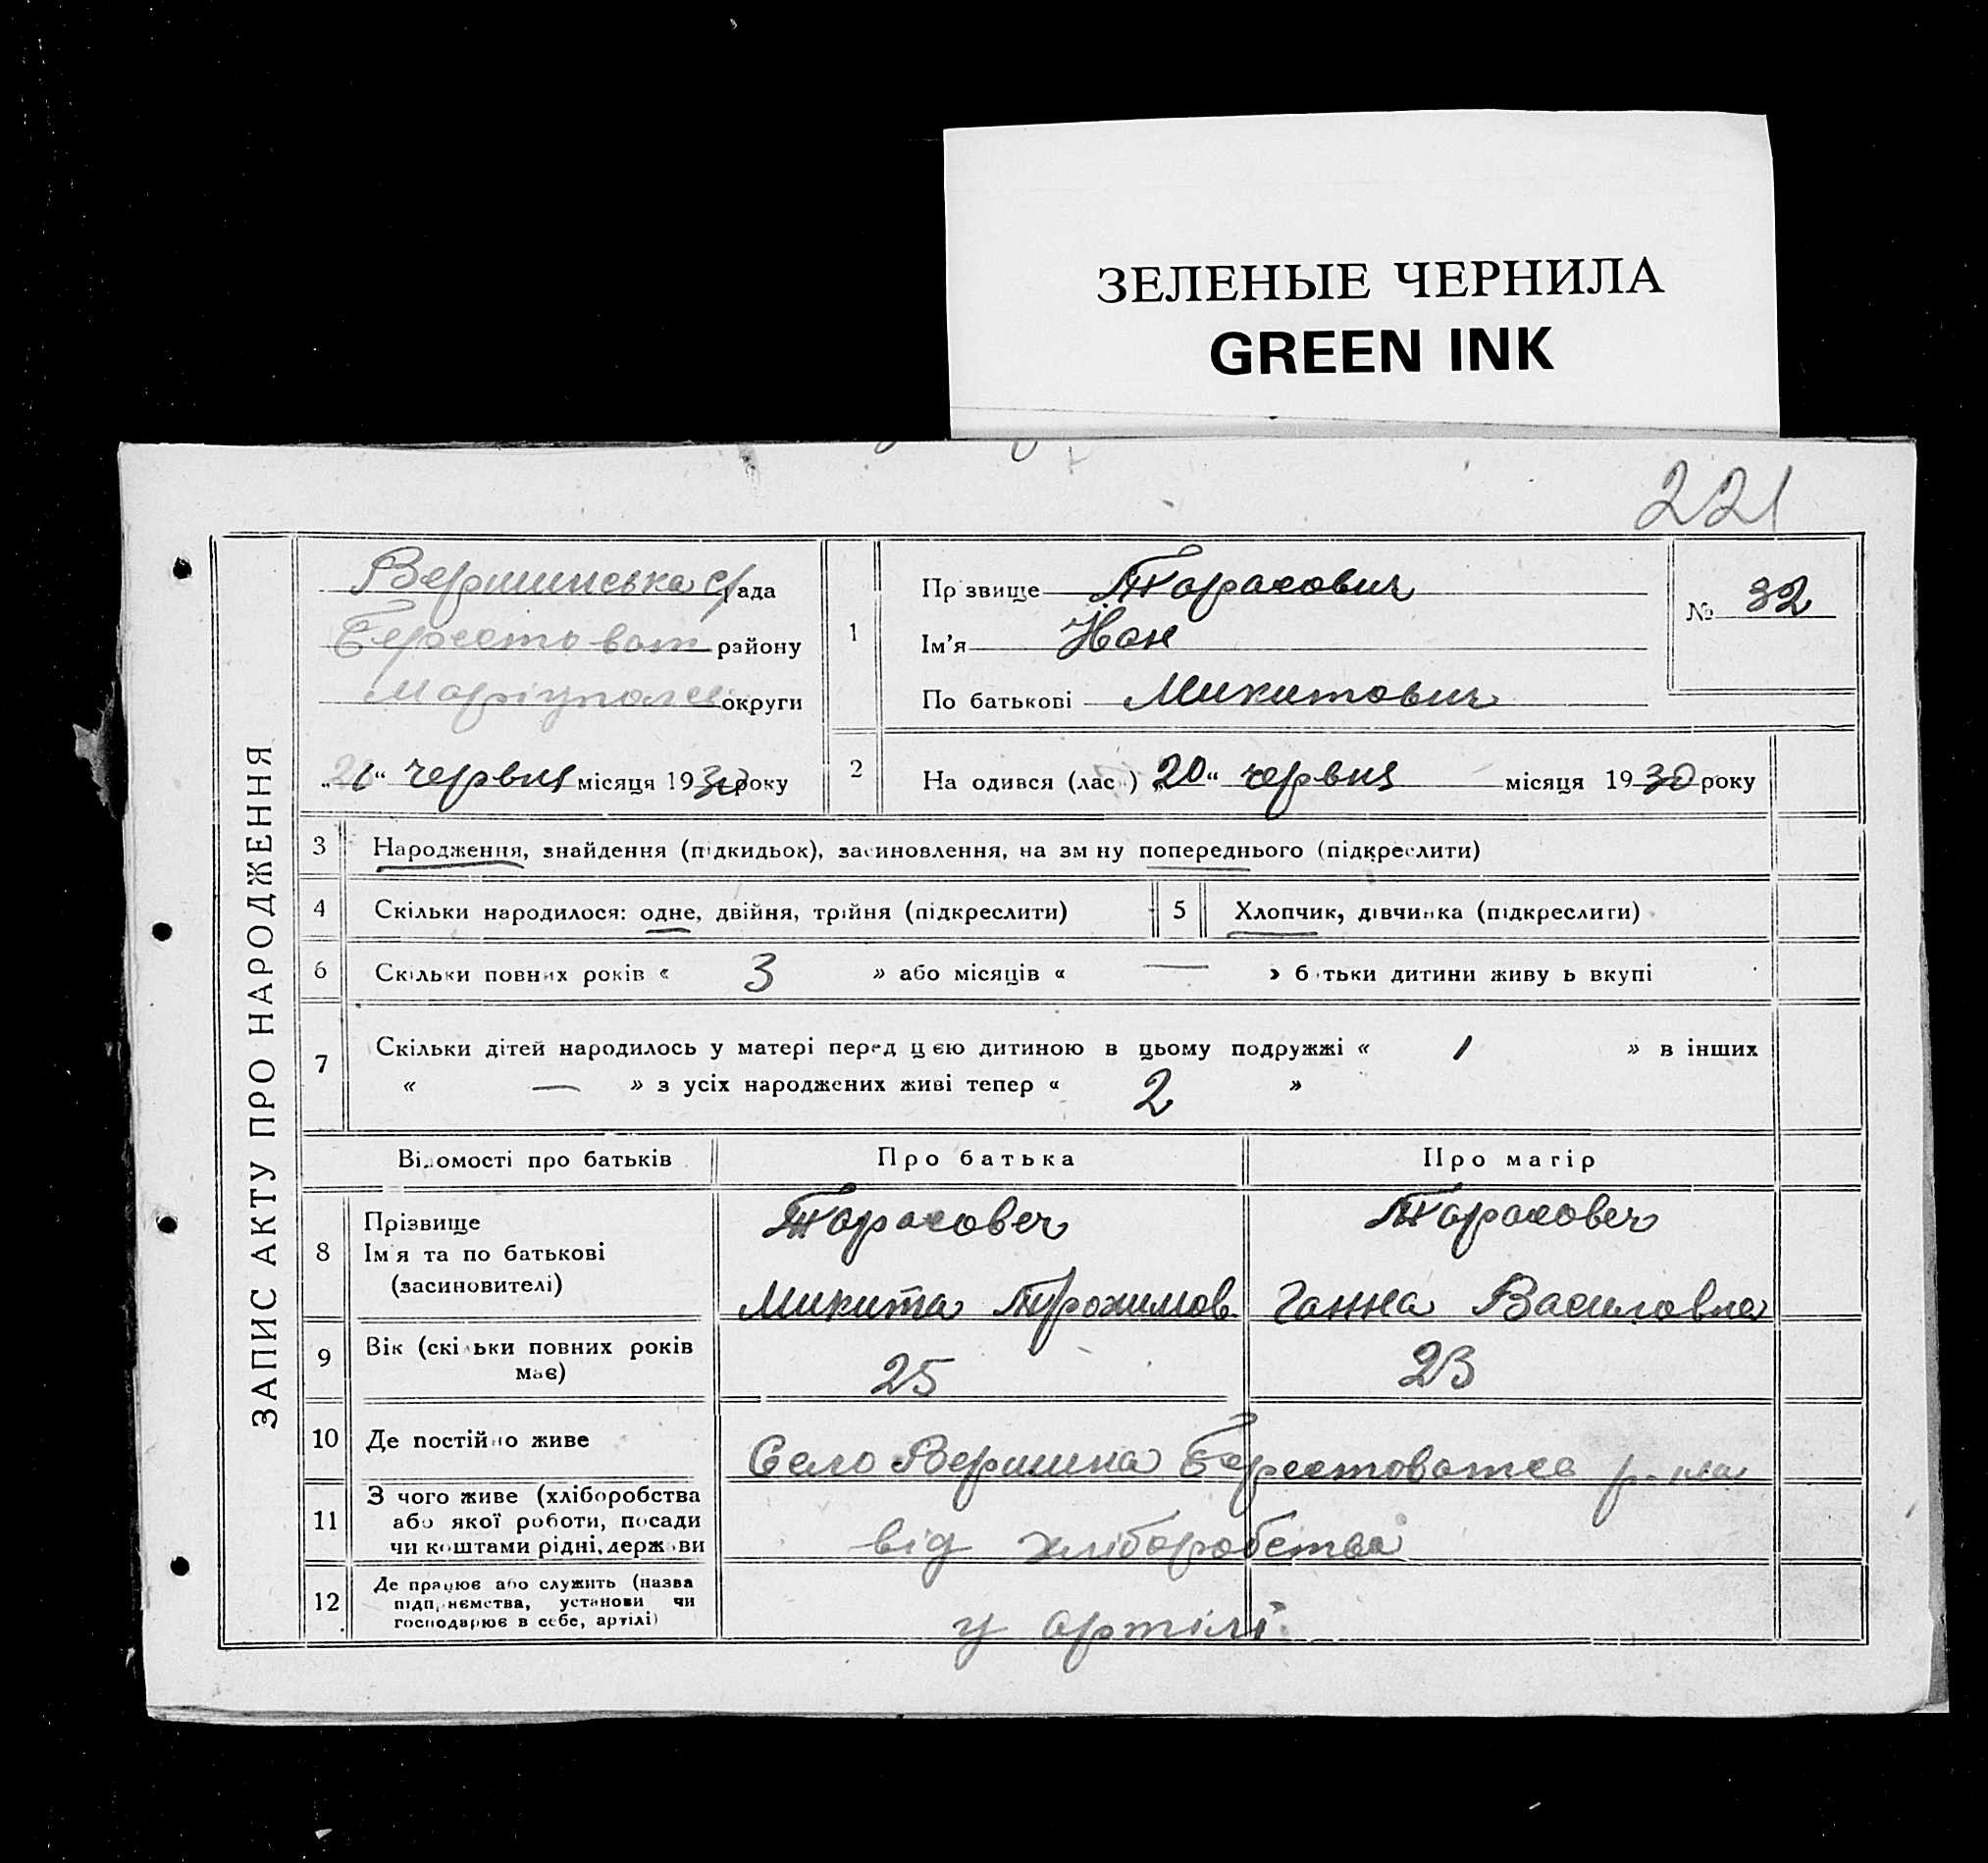 ЗЕЛЕНЫЕ ЧЕРНИЛА
GREEN INK
221
ЗАПИС АКТУ ПРО НАРОДЖЕННЯ
Вершинська с/рада
району
Маріуполс округи
„21“ червня місяця 1930 року
1
Пр звище Тарасович
Ім'я
По батькові Микитович
№ 32
2 На одився (лас ) „20“ червня місяця 1930 року
3 Народження, знайдення (підкидьок), засиновлення, на зм ну попереднього (підкреслити)
4 Скільки народилося: одне, двійня, трійня (підкреслити) 5 Хлопчик, дівчинка (підкреслити)
6 Скільки повних років « 3 » або місяців « — » б тьки дитини живу ь вкупі
7 Скільки дітей народилось у матері перед цією дитиною в цьому подружжі « 1 » в інших
« — » з усіх народжених живі тепер « 2 »
Відомості про батьків Про батька Про матір
8 Прізвище Тарасовеч Тарасовеч
Ім'я та по батькові
(засиновителі) Микита Трохимов Ганна Василовна
9 Вік (скільки повних років
має) 25 23
10 Де постійно живе Село Вершина р-на
11 З чого живе (хліборобства
або якої роботи, посади
чи коштами рідні, держави від хліборобства
12 Де працює або служить (назва
підприємства, установи чи
господарює в себе, артілі) у артілі